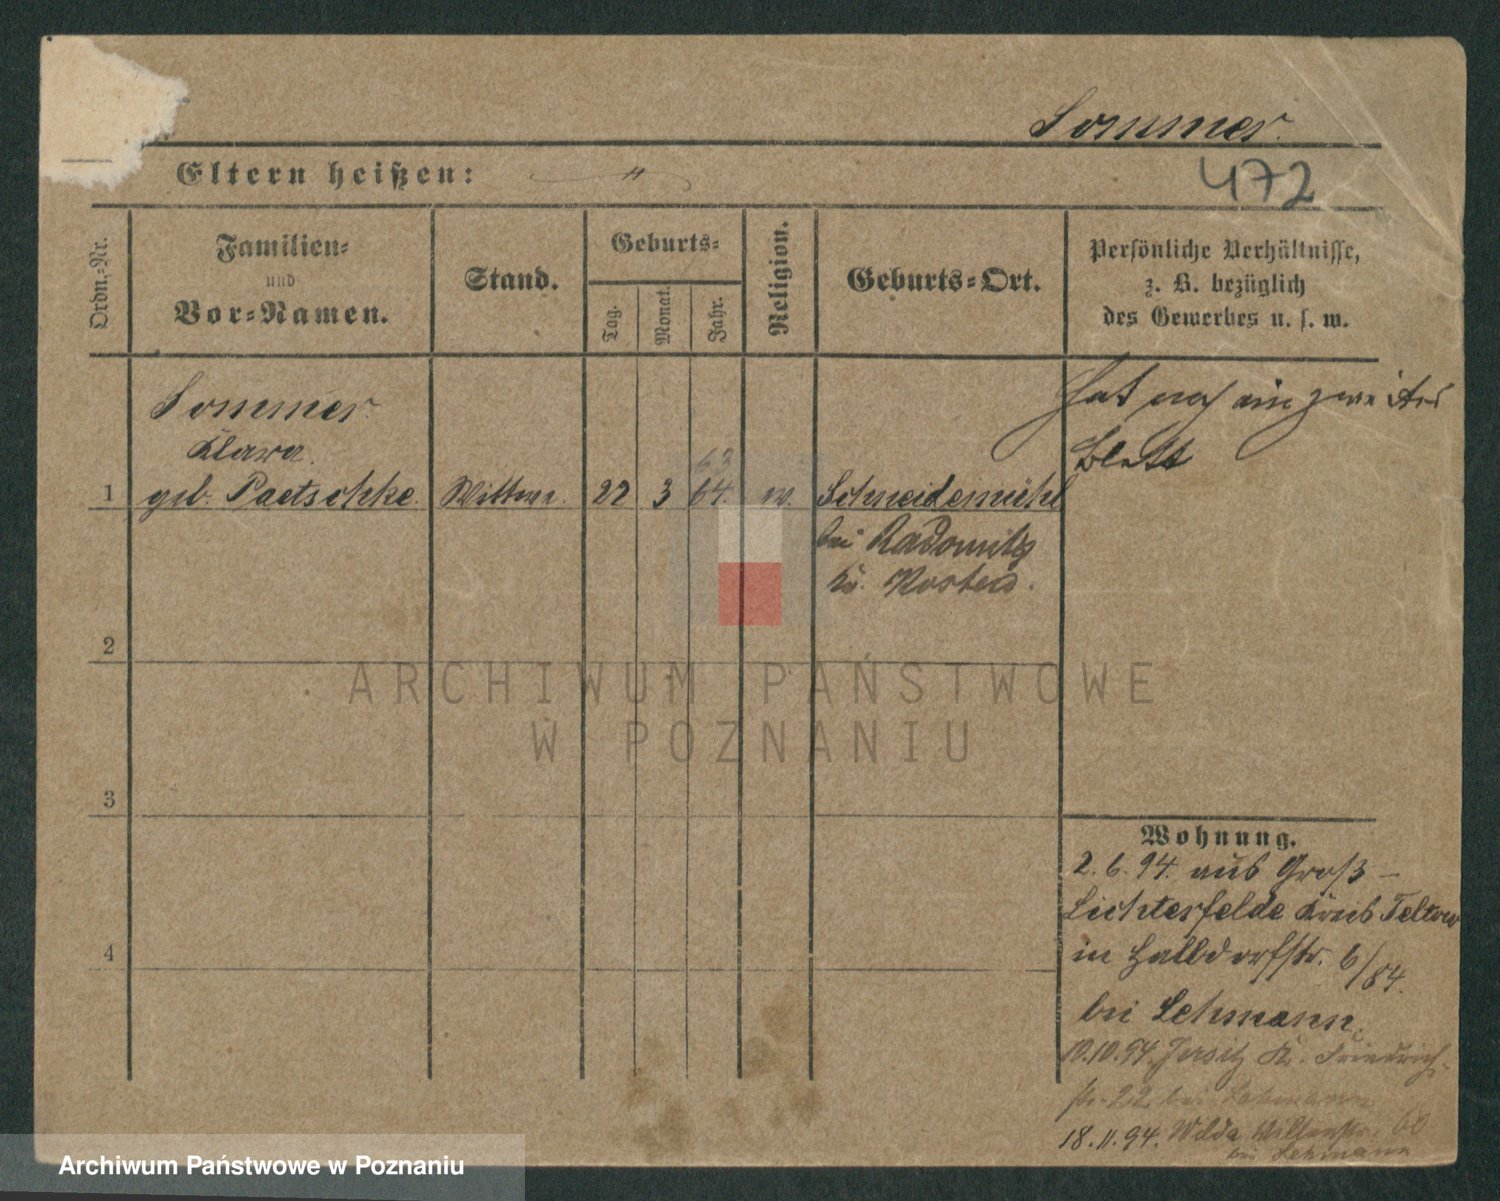 Sommer.
472
Eltern heißen: "
Ordn.-Nr.
Familien-
und
Vor-Namen.
Stand.
Geburts-
Tag.
Monat.
Jahr.
Religion.
Geburts-Ort.
Persönliche Verhältnisse,
z. B. bezüglich
des Gewerbes u. s. w.
Hat noch ein zweites
Blatt
Sommer
Klara.
63
1 geb. Paetschke. Wittwe. 22 3 64.
Schneidemühl
bei Radomitz
Kr. Kosten.
2
3
4
Wohnung.
2.6.94. aus Groß-
Lichterfelde Kreis Teltow
in Halbdorfstr. 6/84.
bei Lehmann.
10.10.94. Jersitz K. Friedrich-
str. 22 bei Lehmann
18.11.94. Wilda
bei Lehmann
ARCHIWUM PAŃSTWOWE
W POZNANIU
Archiwum Państwowe w Poznaniu